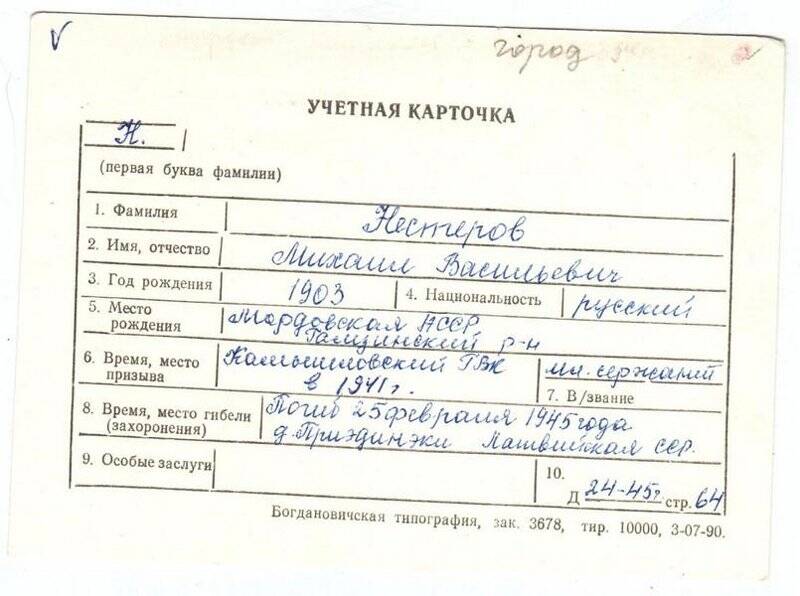 город
УЧЕТНАЯ КАРТОЧКА
Н.
(первая буква фамилии)
1. Фамилия Нестеров
2. Имя, отчество Михаил Васильевич
3. Год рождения 1903 4. Национальность русский
5. Место рождения Мордовская АССР
р-н
6. Время, место призыва Камышловский ГВК
в 1941 г.
мл. сержант
7. В/звание
8. Время, место гибели (захоронения) Погиб 25 февраля 1945 года
д. Приэдинэки Латвийская ССР.
9. Особые заслуги
10.
Д 24-45г стр. 64
Богдановичская типография, зак. 3678, тир. 10000, 3-07-90.